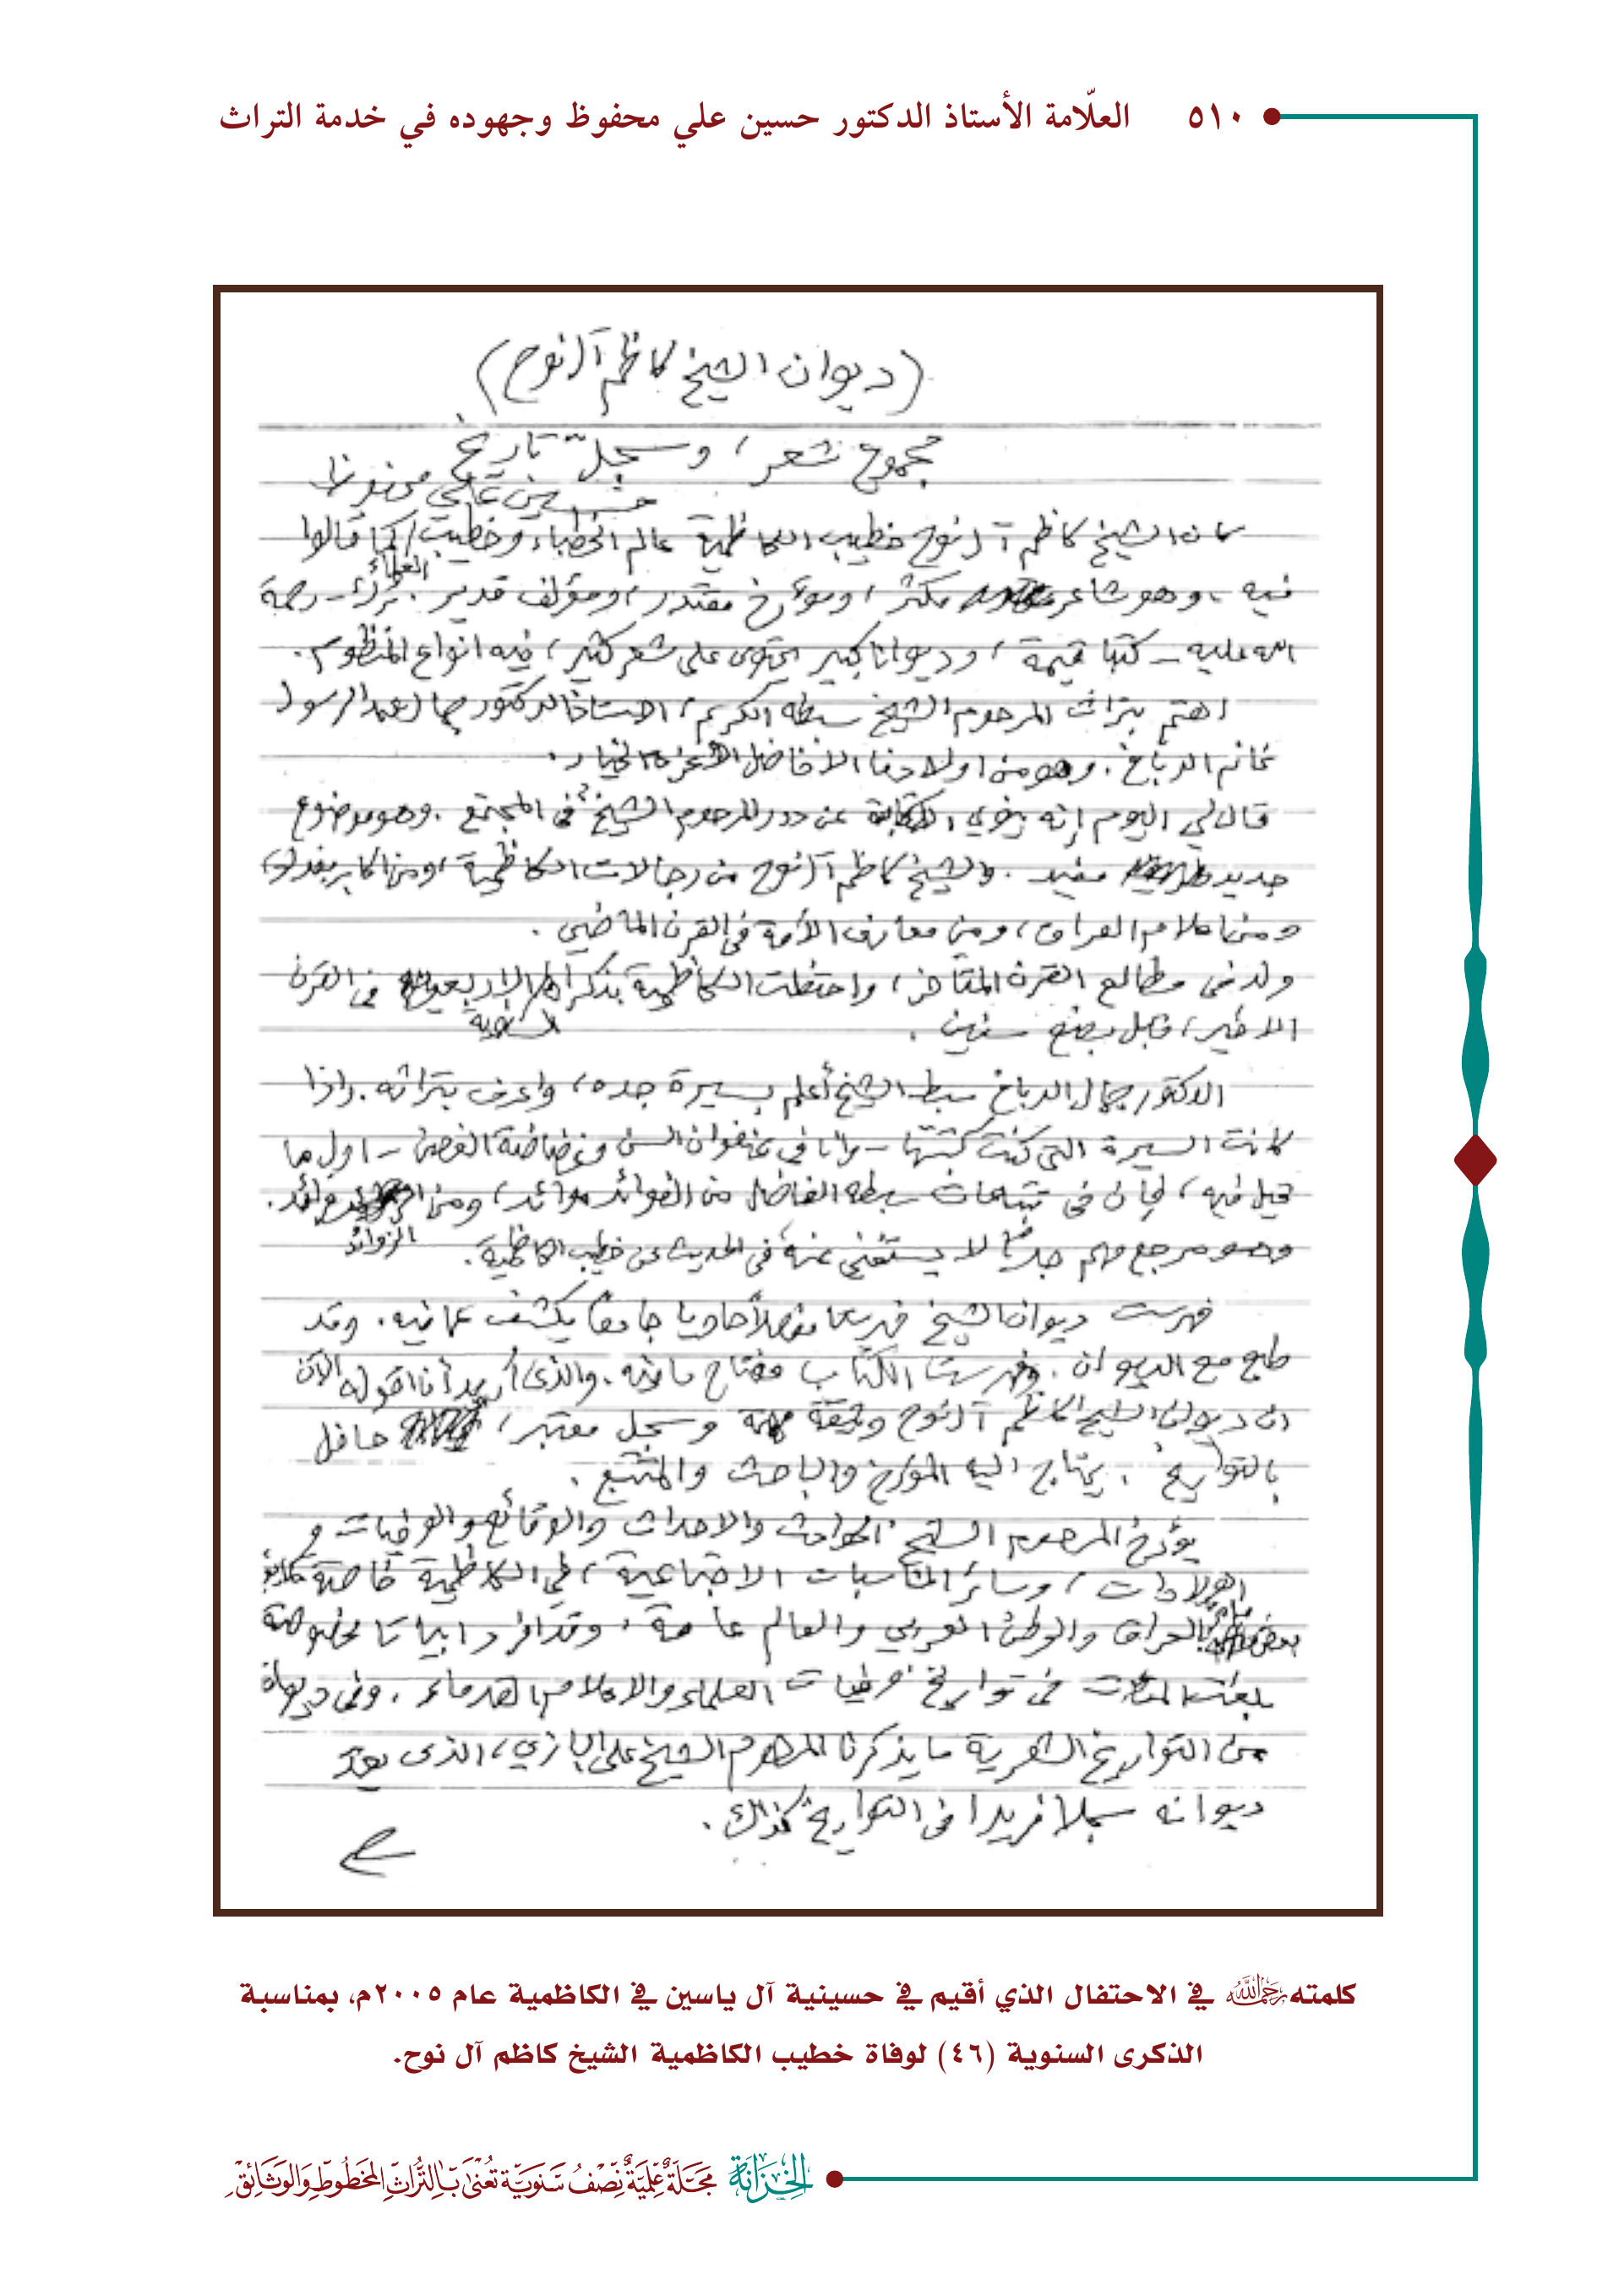 ٥١٠ العلّامة الأستاذ الدكتور حسين علي محفوظ وجهوده في خدمة التراث
(ديوان الشيخ كاظم آل نوح)
مجموع شعر، وسجلّ تاريخ
حسين علي محفوظ
كان الشيخ كاظم آل نوح خطيب الكاظمية عالم الخطباء وخطيب العلماء كما قالوا
فيه - وهو شاعر مكثر، ومؤرخ مقتدر، ومؤلف قدير. ترك - رحمة
الله عليه - كتبا قيمة، وديوانا كبير يحتوى على شعر كثير، فيه انواع المنظوم.
اهتم بتراث المرحوم الشيخ سبطه الكريم، الاستاذ الدكتور جمال عبد الرسول
غانم الدباغ. وهو من اولادنا الافاضل الأعزة الاخيار.
قال لي اليوم إنه ينوي الكتابة عن دور المرحوم الشيخ في المجتمع. وهو موضوع
جديد مفيد. والشيخ كاظم آل نوح من رجالات الكاظمية، ومن اكابر بغداد،
ومن اعلام العراق، ومن معارف الأمة في القرن الماضي.
ولد في مطالع القرن المتأخر، واحتفلت الكاظمية بذكراه السنوية الاربعين في القرن
الاخير، قبل بضع سنين.
الدكتور جمال الدباغ سبط الشيخ أعلم بسيرة جده، واعرف بتراثه. واذا
كانت السيرة التي كنت كتبتها - وانا في عنفوان السن وغضاضة الغصن - اول ما
قيل فيه، فان في تتبعات سبطه الفاضل من الفوائد عوائد، ومن الزوائد فوائد.
وهو مرجع مهم جدا لا يستغنى عنه في الحديث عن خطيب الكاظمية.
فهرست ديوان الشيخ فهرستا مفصلاً حاويا جامعا يكشف عما فيه. وقد
طبع مع الديوان. وفهرست الكتاب مفتاح ما فيه. والذي أريد أن اقوله الآن
ان ديوان الشيخ كاظم آل نوح وثيقة مهمة وسجل معتبر، حافل
بالتواريخ. يحتاج اليه المؤرخ والباحث والمتتبع.
يؤرخ المرحوم الشيخ الحوادث والاحداث والوقائع والوفيات و
الولادات، وسائر المناسبات الاجتماعية، في الكاظمية خاصة
بعض العراق والوطن العربي والعالم عامة. وقد افرد ابياتا مخصوصة
بلغت المئات في تواريخ وفيات العلماء والاعلام القدماء. وفي ديوانه
من التواريخ الشعرية ما يذكرنا المرحوم الشيخ علي البازي، الذي يعد
ديوانه سجلا فريدا في التواريخ كذلك.
كلمته رحمه الله في الاحتفال الذي أقيم في حسينية آل ياسين في الكاظمية عام ٢٠٠٥م، بمناسبة
الذكرى السنوية (٤٦) لوفاة خطيب الكاظمية الشيخ كاظم آل نوح.
الخِزانة مَجَلّةٌ عِلميّةٌ نِصفُ سَنَويّة تُعنى بالتُّراثِ المَخطُوطِ وَالوَثائِق